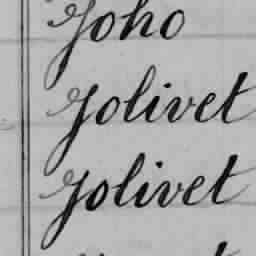 Joho
Jolivet
Jolivet